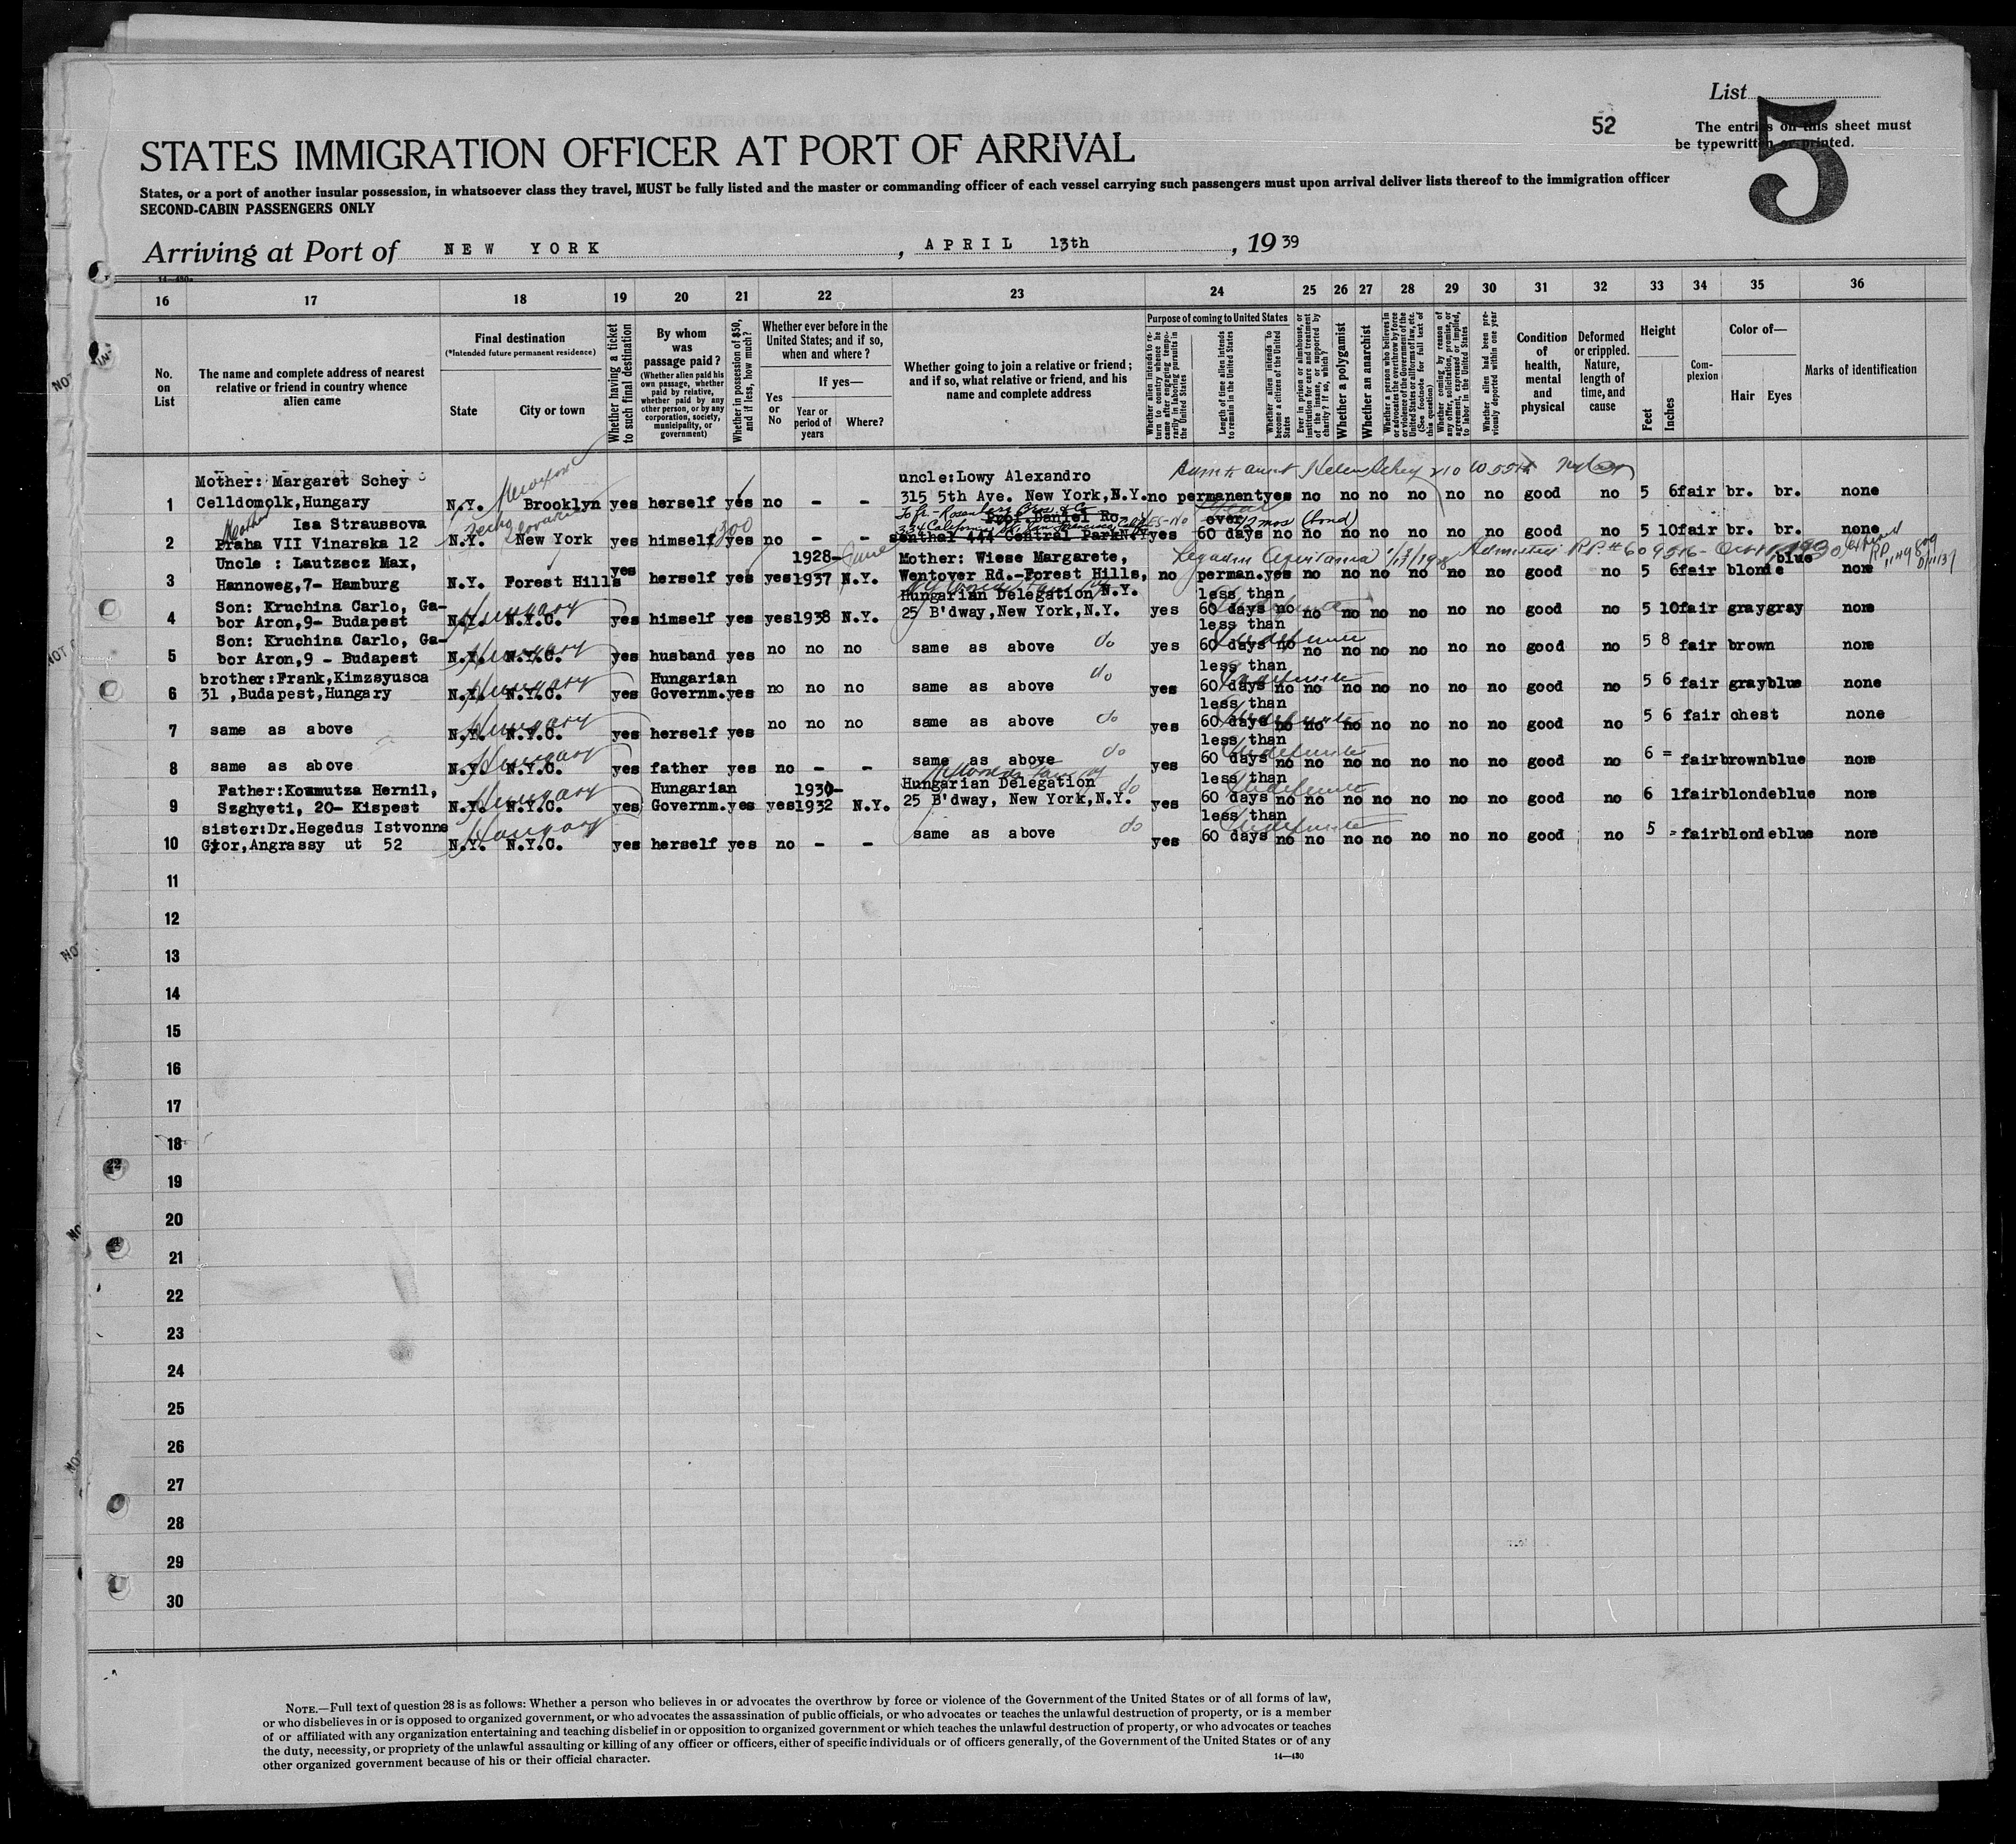 List
52
5
The entries on this sheet must
be typewritten or printed.
STATES IMMIGRATION OFFICER AT PORT OF ARRIVAL
States, or a port of another insular possession, in whatsoever class they travel, MUST be fully listed and the master or commanding officer of each vessel carrying such passengers must upon arrival deliver lists thereof to the immigration officer
SECOND-CABIN PASSENGERS ONLY
Arriving at Port of NEW YORK, APRIL 13th, 1939
14—430a
16 17 18 19 20 21 22 23 24 25 26 27 28 29 30 31 32 33 34 35 36
No. on List
The name and complete address of nearest relative or friend in country whence alien came
Final destination
(*Intended future permanent residence)
State
City or town
Whether having a ticket to such final destination
By whom was passage paid?
(Whether alien paid his own passage, whether paid by relative, whether paid by any other person, or by any corporation, society, municipality, or government)
Whether in possession of $50, and if less, how much?
Whether ever before in the United States; and if so, when and where?
Yes or No
If yes—
Year or period of years
Where?
Whether going to join a relative or friend; and if so, what relative or friend, and his name and complete address
Purpose of coming to United States
Whether alien intends to return to country whence he came after engaging temporarily in laboring pursuits in the United States
Length of time alien intends to remain in the United States
Whether alien intends to become a citizen of the United States
Ever in prison or almshouse, or institution for care and treatment of the insane, or supported by charity? If so, which?
Whether a polygamist
Whether an anarchist
Whether a person who believes in or advocates the overthrow by force or violence of the Government of the United States or all forms of law, etc. (See footnote for full text of this question)
Whether coming by reason of any offer, solicitation, promise, or agreement, expressed or implied, to labor in the United States
Whether alien had been previously deported within one year
Condition of health, mental and physical
Deformed or crippled. Nature, length of time, and cause
Height
Feet
Inches
Complexion
Color of—
Hair
Eyes
Marks of identification
Mother: Margaret Schey uncle:Lowy Alexandro aunt Helen Schey 210 W 55th
1 Celldomolk,Hungary N.Y. Brooklyn yes herself yes no - - 315 5th Ave. New York,N.Y. no permanent yes no no no no no no good no 5 6 fair br. br. none
Mother Isa Straussova 300 To fr- Rosenberg Bros & Co Prof.Daniel Ro over 12 mos (bond)
334 California St San Francisco Calif
2 Praha VII Vinarska 12 N.Y. New York yes himself yes no - - senthal 444 Central Park N.Y. yes 60 days no no no no no no no good no 5 10 fair br. br. none
Uncle : Lautzscz Max, 1928- June Mother: Wiese Margarete, Admitted blue
3 Hannoweg,7- Hamburg N.Y. Forest Hills yes herself yes yes 1937 N.Y. Wentover Rd.-Forest Hills, no perman. yes no no no no no no good no 5 6 fair blonde none
N.Y.
Son: Kruchina Carlo, Ga- Hungary Hungarian Delegation less than
4 bor Aron,9- Budapest N.Y. N.Y.C. yes himself yes yes 1938 N.Y. 25 B'dway,New York,N.Y. yes 60 days no no no no no no no good no 5 10 fair gray gray none
Son: Kruchina Carlo, Ga- Hungary less than Indefinite
5 bor Aron,9 - Budapest N.Y. N.Y.C. yes husband yes no no no same as above do yes 60 days no no no no no no no good no 5 8 fair brown none
brother:Frank,Kimzsyusca Hungary Hungarian less than Indefinite
6 31 ,Budapest,Hungary N.Y. N.Y.C. yes Governm. yes no no no same as above do yes 60 days no no no no no no no good no 5 6 fair gray blue none
Hungary less than Indefinite
7 same as above N.Y. N.Y.C. yes herself yes no no no same as above do yes 60 days no no no no no no no good no 5 6 fair chest none
Hungary less than Indefinite
8 same as above N.Y. N.Y.C. yes father yes no - - same as above do yes 60 days no no no no no no no good no 6 = fair brown blue none
Father:Koumutza Hernil, Hungary Hungarian 1930- Hungarian Delegation do less than Indefinite
9 Szghyeti, 20- Kispest N.Y. N.Y.C. yes Governm. yes yes 1932 N.Y. 25 B'dway, New York,N.Y. yes 60 days no no no no no no no good no 6 1 fair blonde blue none
sister:Dr.Hegedus Istvonne Hungary less than Indefinite
10 Gyor,Angrassy ut 52 N.Y. N.Y.C. yes herself yes no - - same as above do yes 60 days no no no no no no no good no 5 = fair blonde blue none
11
12
13
14
15
16
17
18
19
20
21
22
23
24
25
26
27
28
29
30
NOTE.—Full text of question 28 is as follows: Whether a person who believes in or advocates the overthrow by force or violence of the Government of the United States or of all forms of law,
or who disbelieves in or is opposed to organized government, or who advocates the assassination of public officials, or who advocates or teaches the unlawful destruction of property, or is a member
of or affiliated with any organization entertaining and teaching disbelief in or opposition to organized government or which teaches the unlawful destruction of property, or who advocates or teaches
the duty, necessity, or propriety of the unlawful assaulting or killing of any officer or officers, either of specific individuals or of officers generally, of the Government of the United States or of any
other organized government because of his or their official character.
14—430